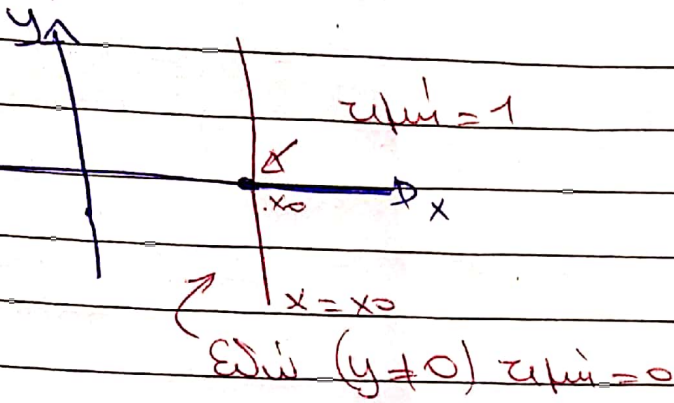 y
τιμή = 1
x₀ x
x = x₀
εδώ (y ≠ 0) τιμή = 0